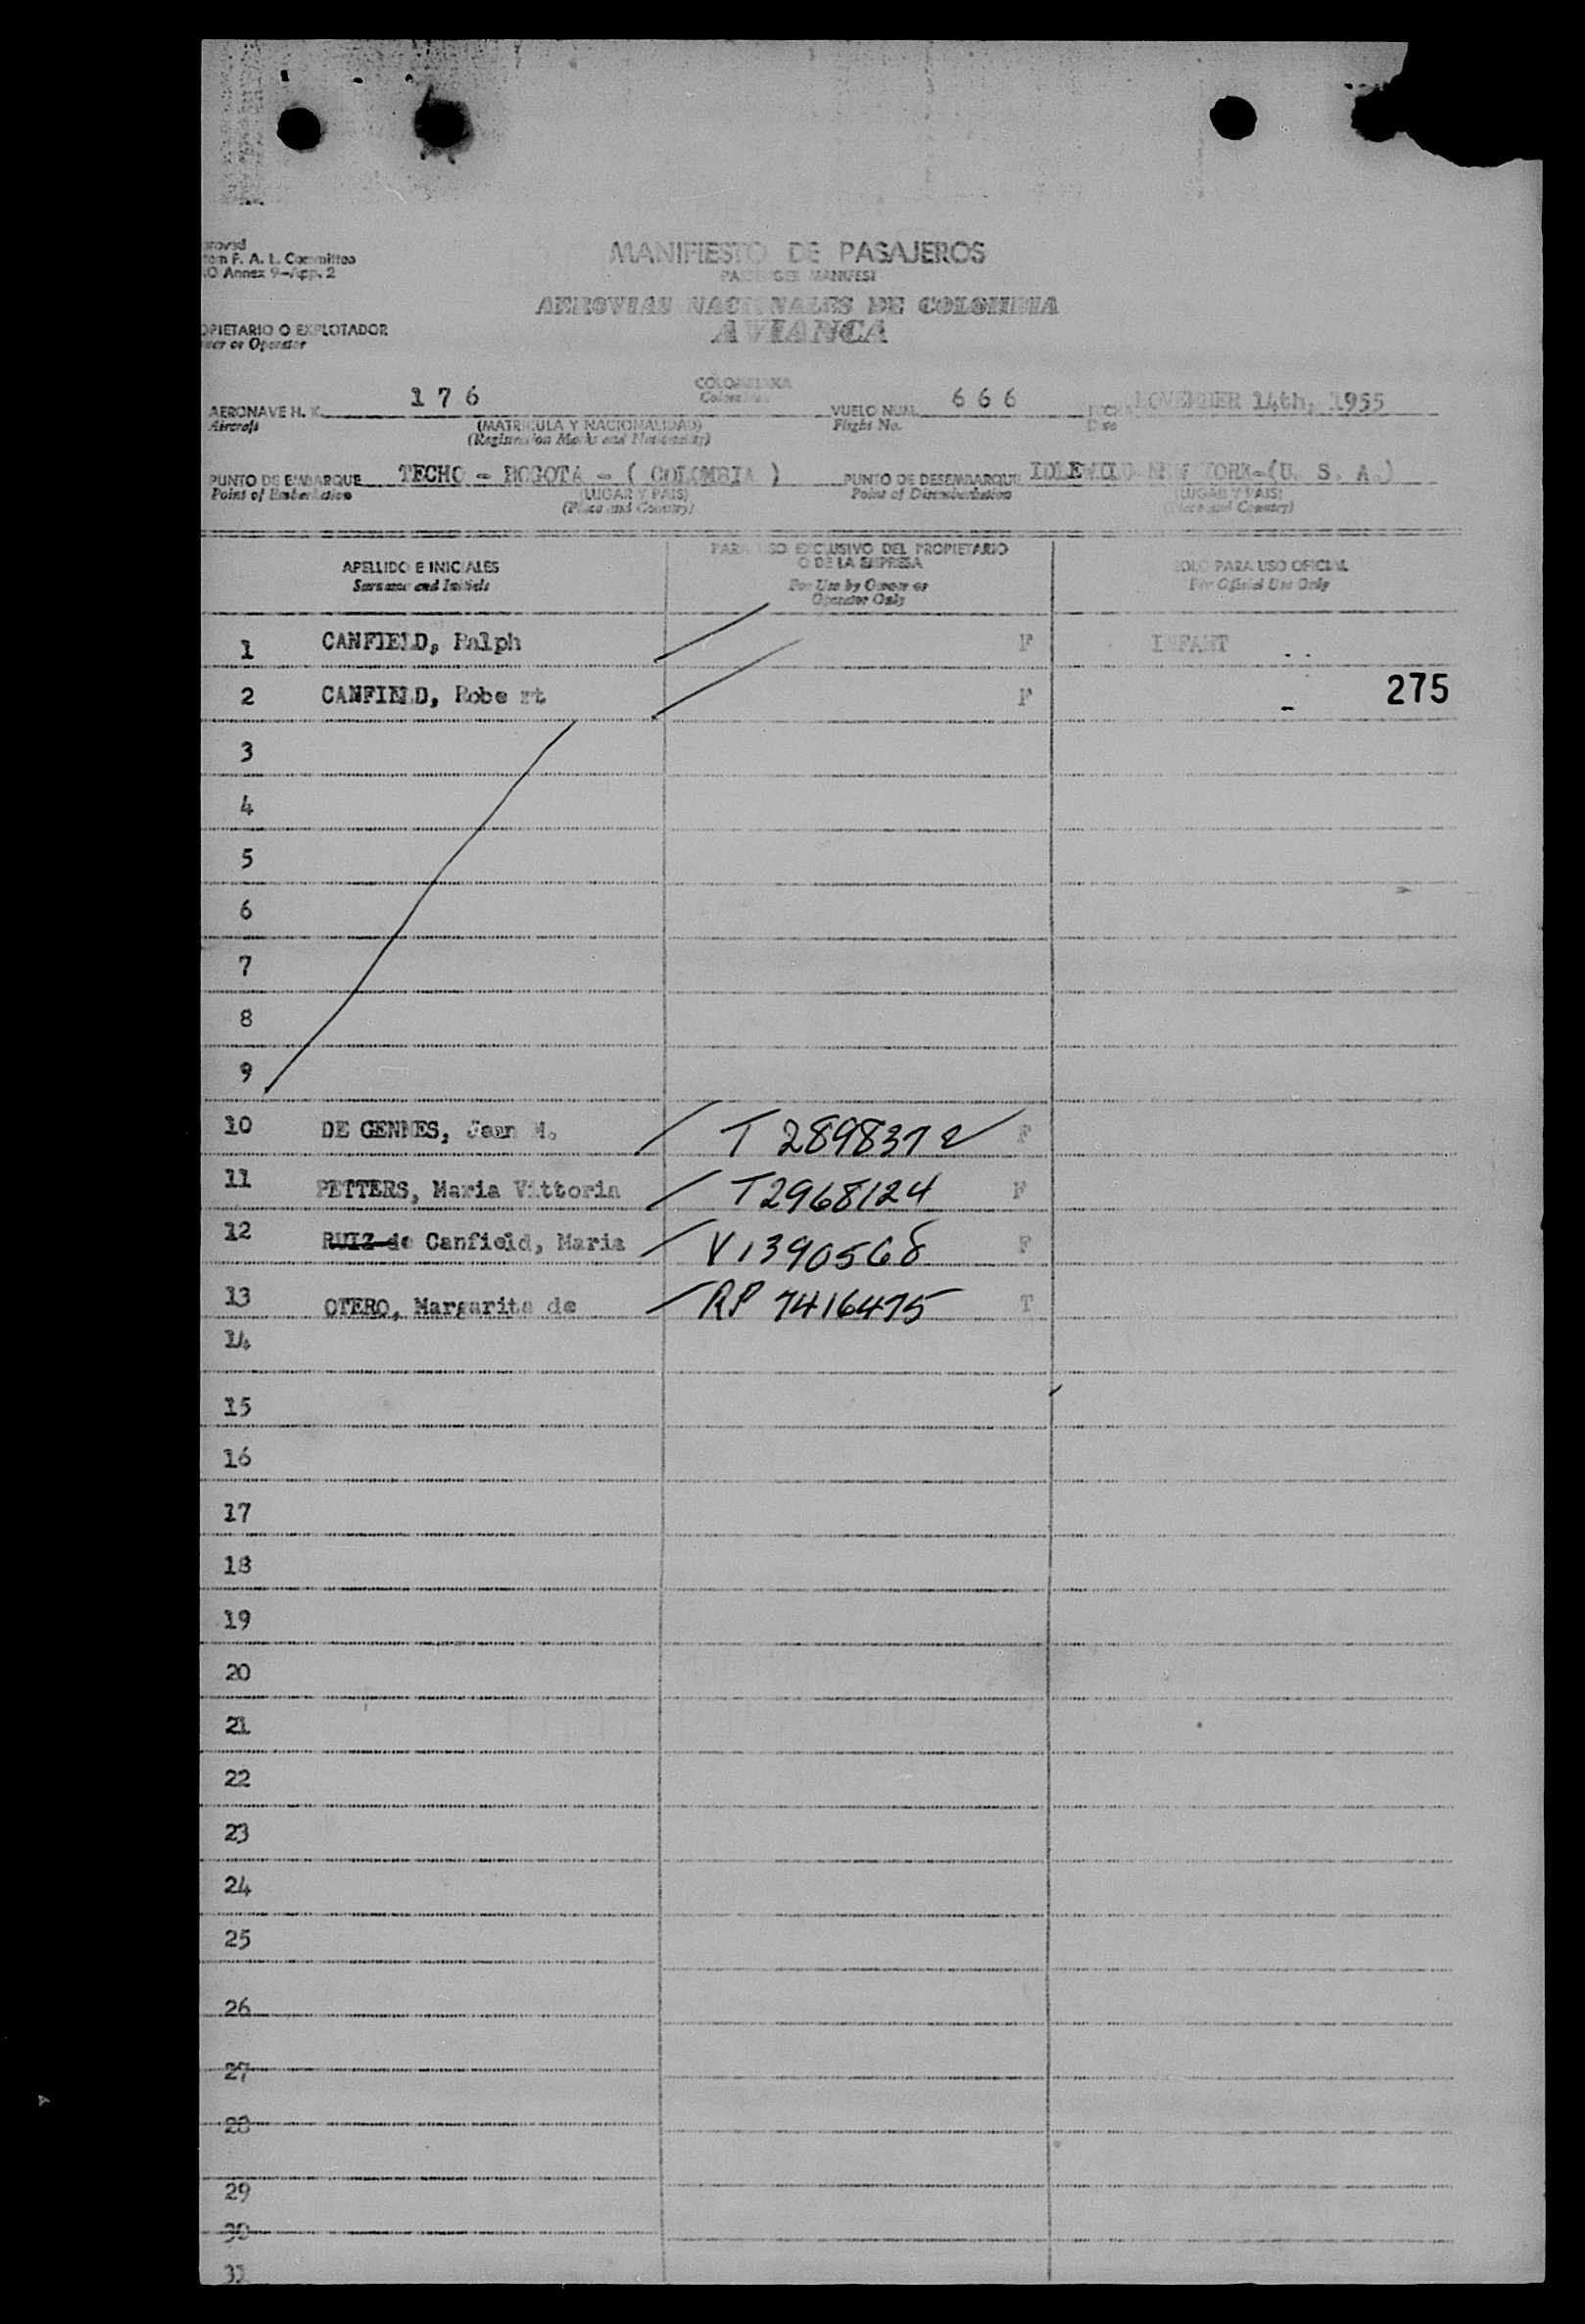 roved
tern F. A. L. Committee
O Annex 9-App. 2
MANIFIESTO DE PASAJEROS
PASSENGER MANIFEST
AEROVIAS NACIONALES DE COLOMBIA
AVIANCA
OPIETARIO O EXPLOTADOR
ner or Operator
AERONAVE H. K. 176 COLOMBIANA VUELO NUM. 666 FECHA NOVEMBER 14th, 1955
Aircraft (MATRICULA Y NACIONALIDAD) Colombian Flight No. Date
(Registration Marks and Nationality)
PUNTO DE EMBARQUE TECHO - BOGOTA - ( COLOMBIA ) PUNTO DE DESEMBARQUE IDLEWILD NEW YORK-(U. S. A.)
Point of Embarkation (LUGAR Y PAIS) Point of Disembarkation (LUGAR Y PAIS)
(Place and Country) (Place and Country)
APELLIDO E INICIALES PARA USO EXCLUSIVO DEL PROPIETARIO O DE LA EMPRESA SOLO PARA USO OFICIAL
Surname and Initials For Use by Owner or Operator Only For Official Use Only
1 CANFIELD, Ralph F INFANT
2 CANFIELD, Robe rt F 275
3
4
5
6
7
8
9
10 DE GENNES, Jean M. T 2898372 F
11 PETTERS, Maria Vittoria T2968124 F
12 RUIZ de Canfield, Maria V1390568 F
13 OTERO, Margarita de RP 7416475 T
14
15
16
17
18
19
20
21
22
23
24
25
26
27
28
29
30
31